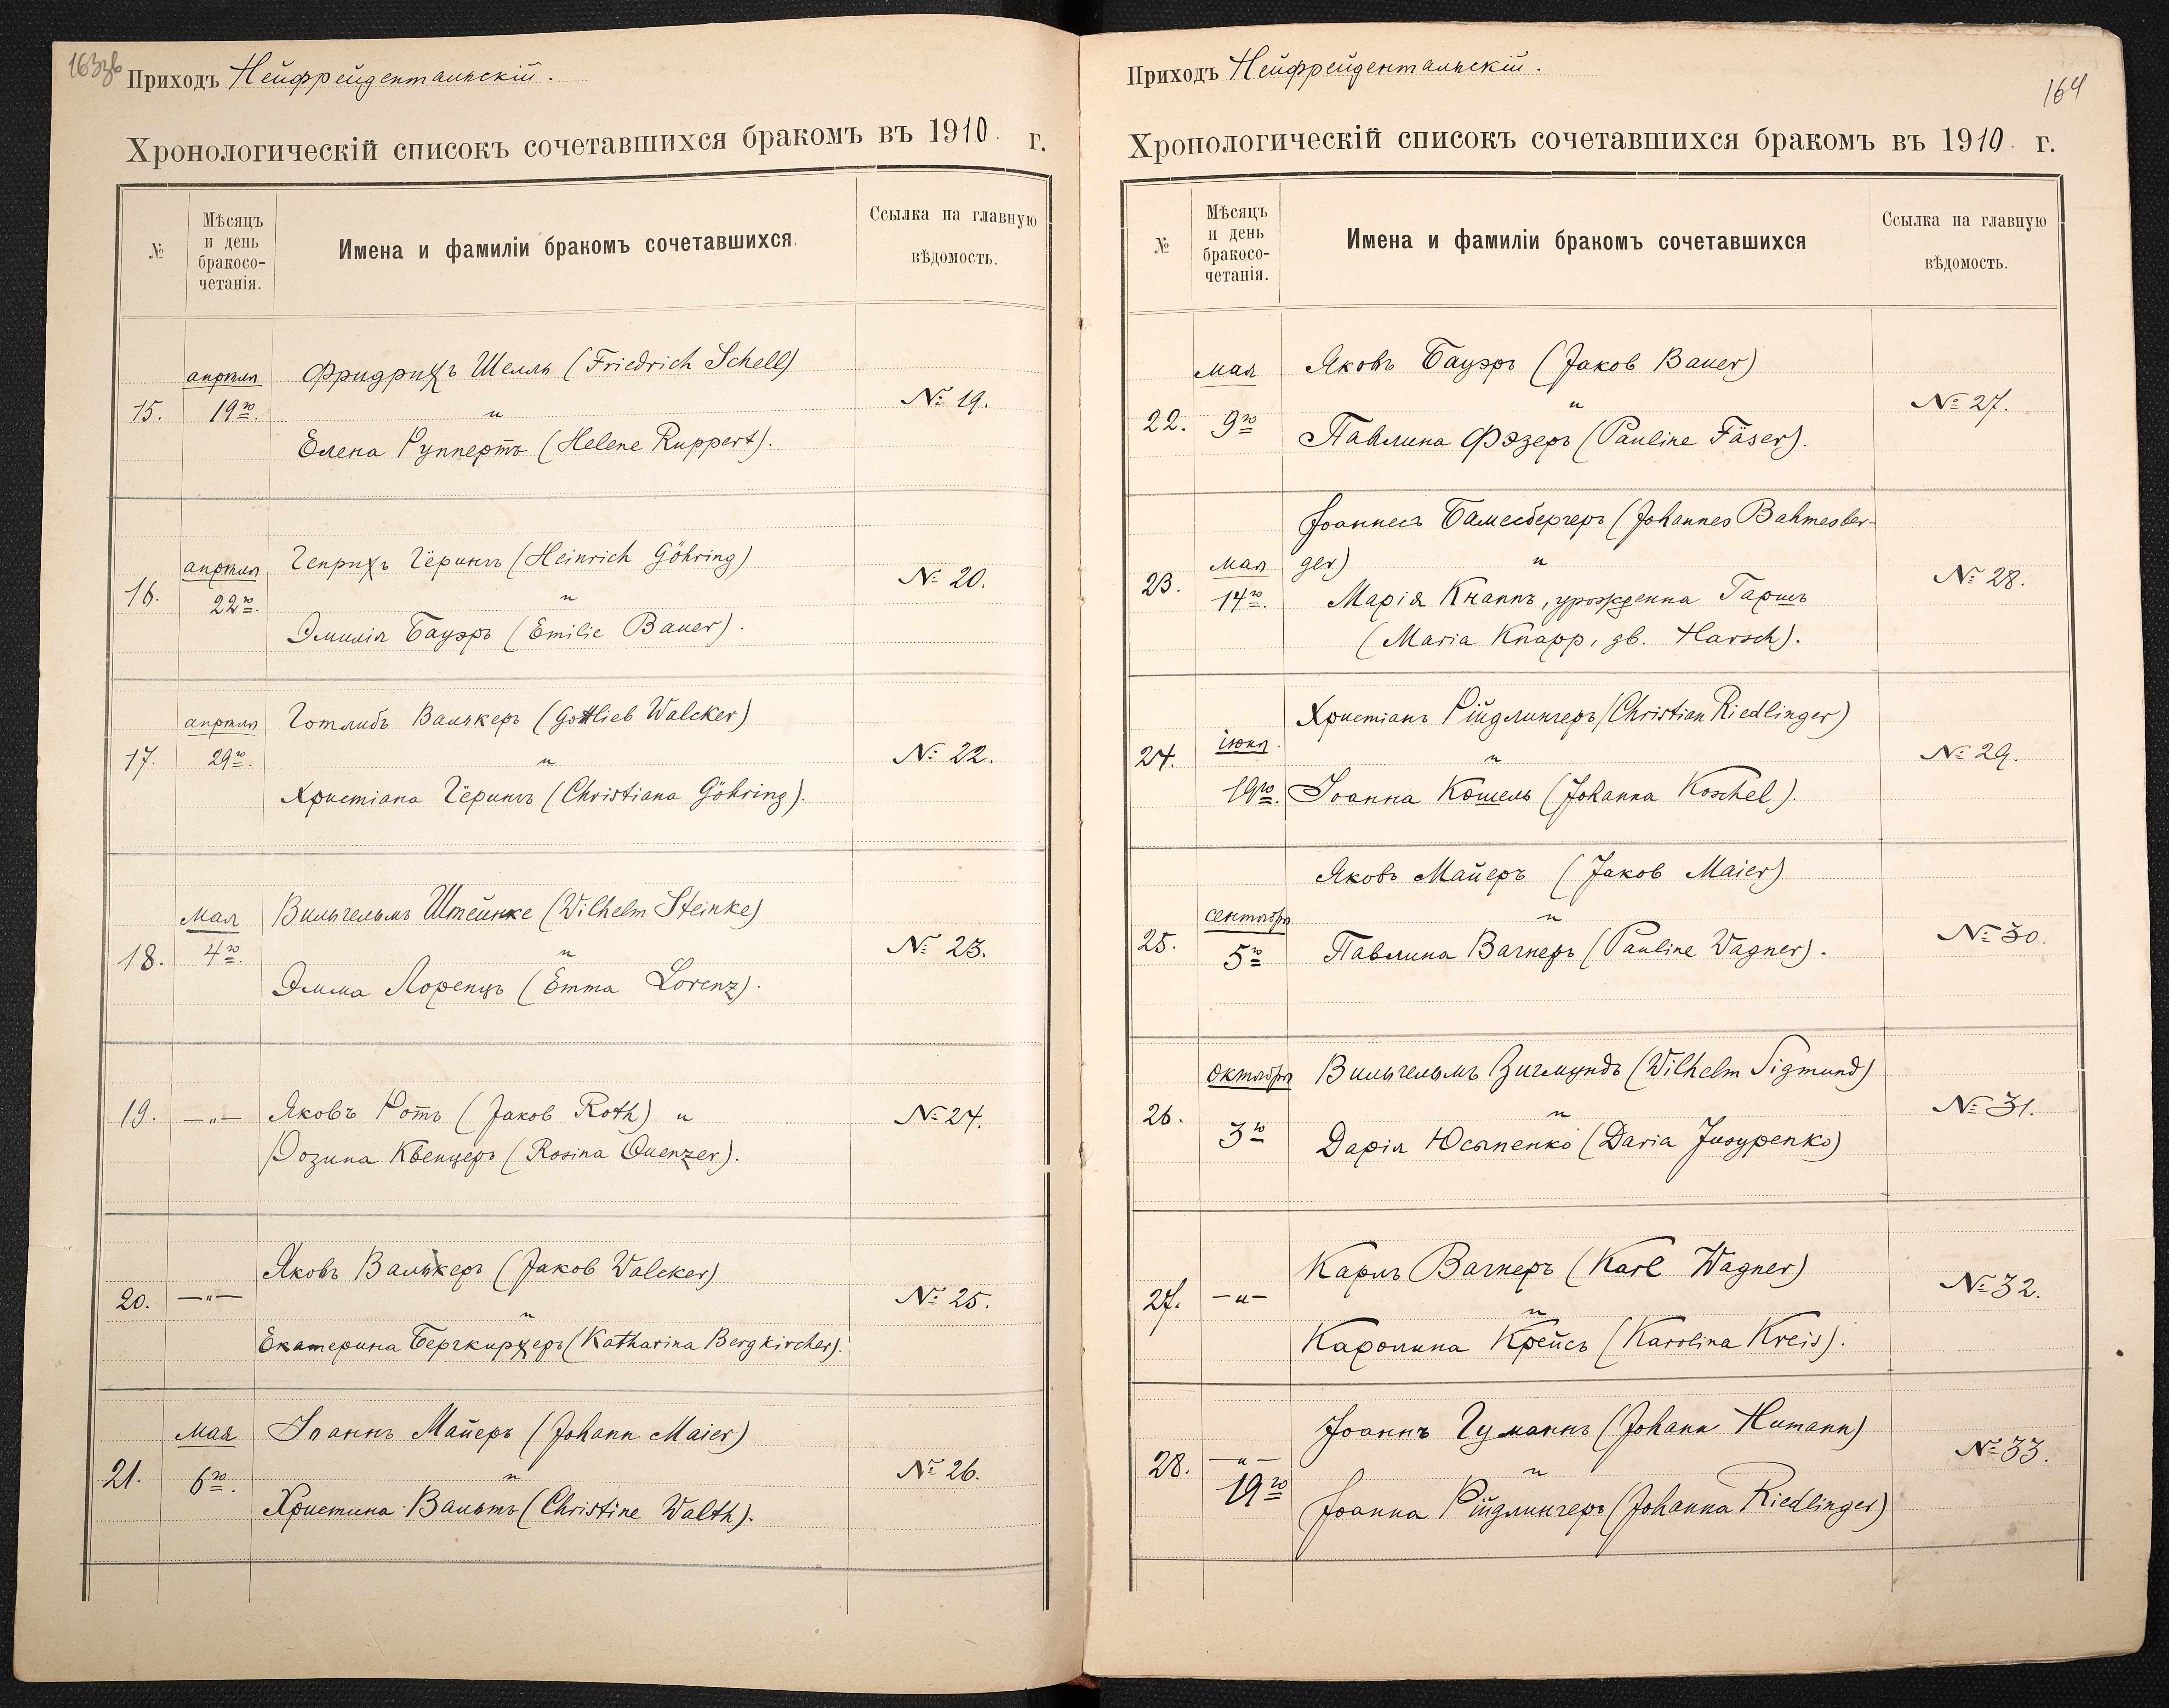 163зв
Приходъ Нейфрейдентальскій.
Хронологическій списокъ сочетавшихся бракомъ въ 1910 г.
№
Мѣсяцъ
и день
бракосо-
четанія.
Имена и фамиліи бракомъ сочетавшихся
Ссылка на главную
вѣдомость.
апрѣля Фридрихъ Шелль (Friedrich Schell)
15. 19го. и № 19.
Елена Руппертъ (Helene Ruppert).
апрѣля Генрихъ Гёрингъ (Heinrich Göhring)
16. 22го. и № 20.
Эмилія Бауэръ (Emilie Bauer).
апрѣля Готлибъ Валькеръ (Gottlieb Walcker)
17. 29го. и № 22.
Христіана Гёрингъ (Christiana Göhring).
мая Вильгельмъ Штейнке (Wilhelm Steinke)
18. 4го. и № 23.
Эмма Лоренцъ (Emma Lorenz).
19. —„— Яковъ Ротъ (Jakob Roth) и № 24.
Розина Квенцеръ (Rosina Quenzer).
Яковъ Валькеръ (Jakob Walcker)
20. —„— и № 25.
Екатерина Бергкирхеръ (Katharina Bergkircher).
мая Іоаннъ Майеръ (Johann Maier)
21. 6го. и № 26.
Христина Вальтъ (Christine Walth).
Приходъ Нейфрейдентальскій.
164
Хронологическій списокъ сочетавшихся бракомъ въ 1910 г.
№
Мѣсяцъ
и день
бракосо-
четанія.
Имена и фамиліи бракомъ сочетавшихся
Ссылка на главную
вѣдомость.
мая Яковъ Бауэръ (Jakob Bauer)
22. 9го и № 27.
Павлина Фэзеръ (Pauline Fäser).
Іоаннесъ Бамесбергеръ (Johannes Bahmesber-
мая ger) и
23. 14го. Марія Кнаппъ, урожденна Гаршъ № 28.
(Maria Knapp, gb. Harsch).
Христіанъ Рійдлингеръ (Christian Riedlinger)
24. іюня и № 29.
19го. Іоанна Кошель (Johanna Koschel).
Яковъ Майеръ (Jakob Maier)
сентября и
25. 5го Павлина Вагнеръ (Pauline Wagner). № 30.
октября Вильгельмъ Зигмундъ (Wilhelm Sigmund)
26. и № 31.
3го Дарія Юсыпенко (Daria Jusypenko)
Карлъ Вагнеръ (Karl Wagner)
27. —„— и № 32.
Каролина Крейсъ (Karolina Kreis).
Іоаннъ Гуманнъ (Johann Humann)
28. —„— и № 33.
19го Іоанна Рійдлингеръ (Johanna Riedlinger)